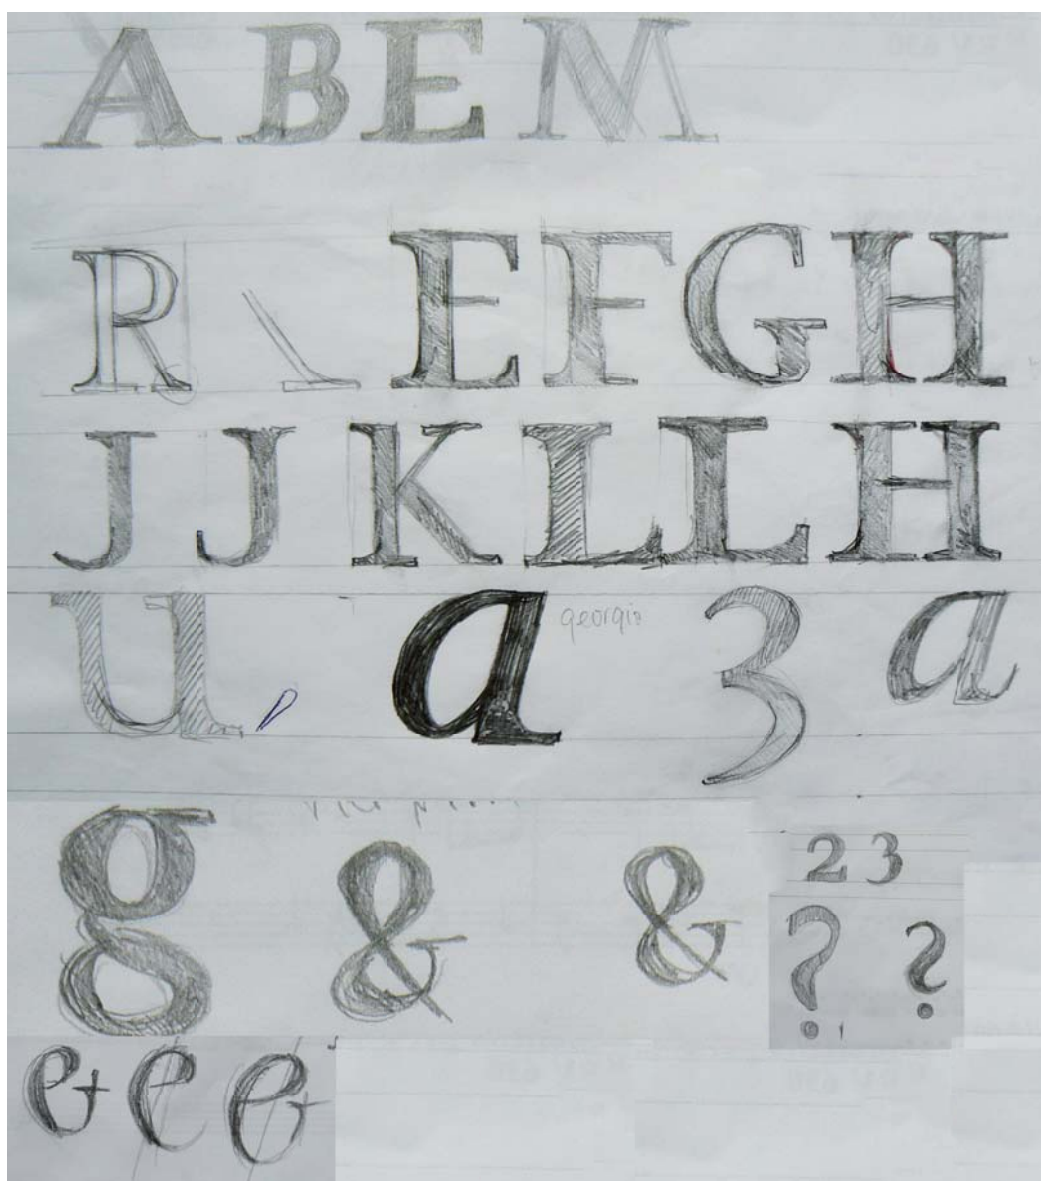 A B E M
R E F G H
J J K L L H
u a georgia 3 a
g & & 2 3
? ?
e e